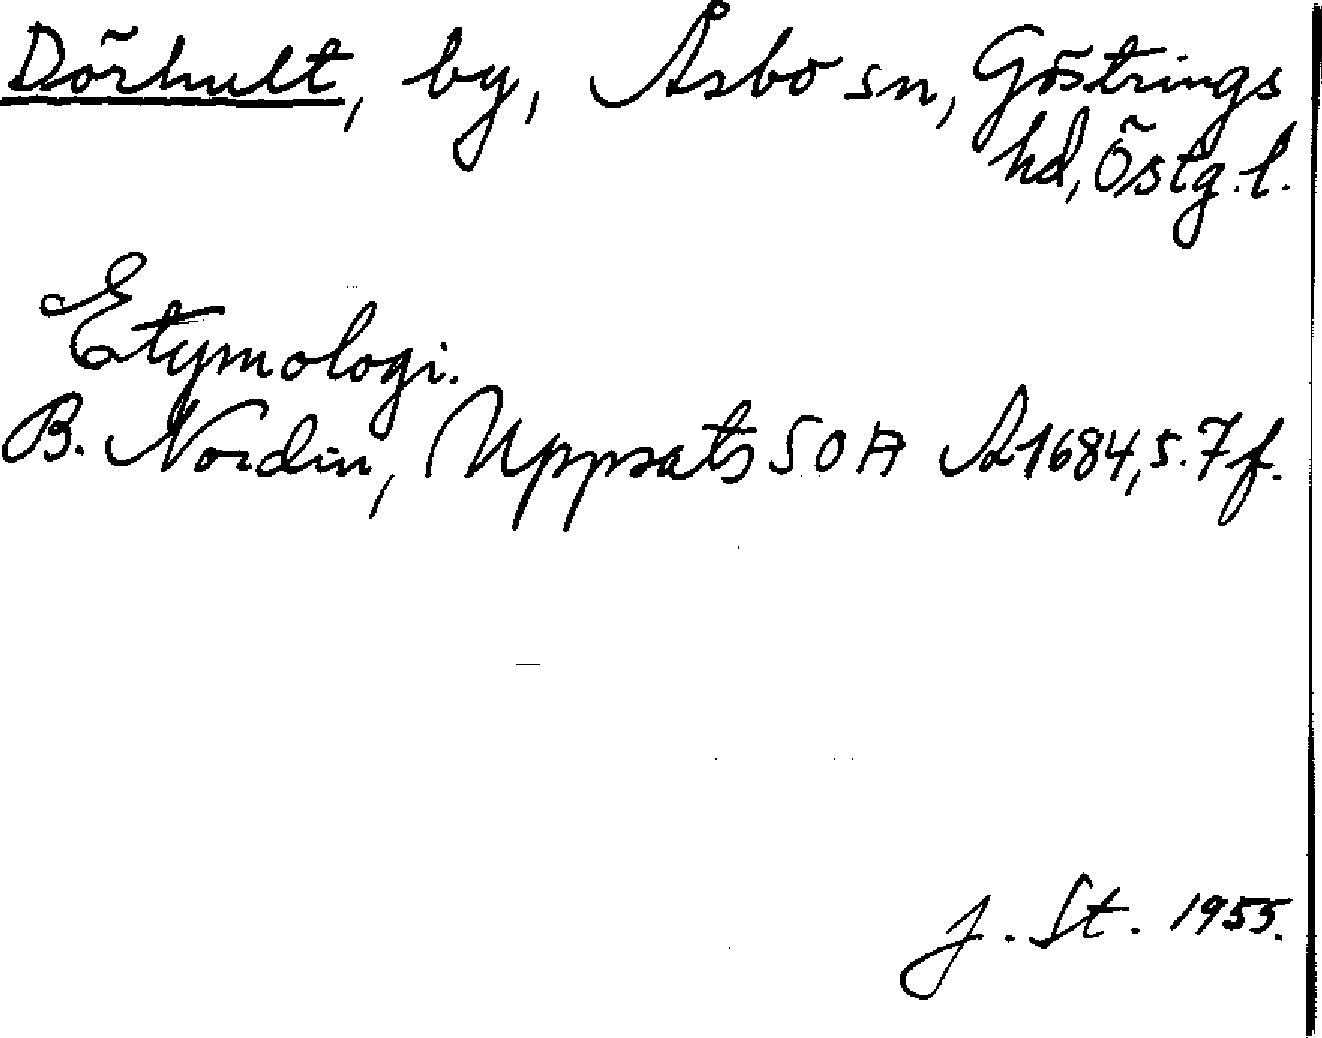 Dörhult, by, Åsbo sn, Göstrings
hd, Östg.l.
Etymologi.
B. Nordin, Uppsats SOA A1684, s. 7 f.
J. St. 1955.